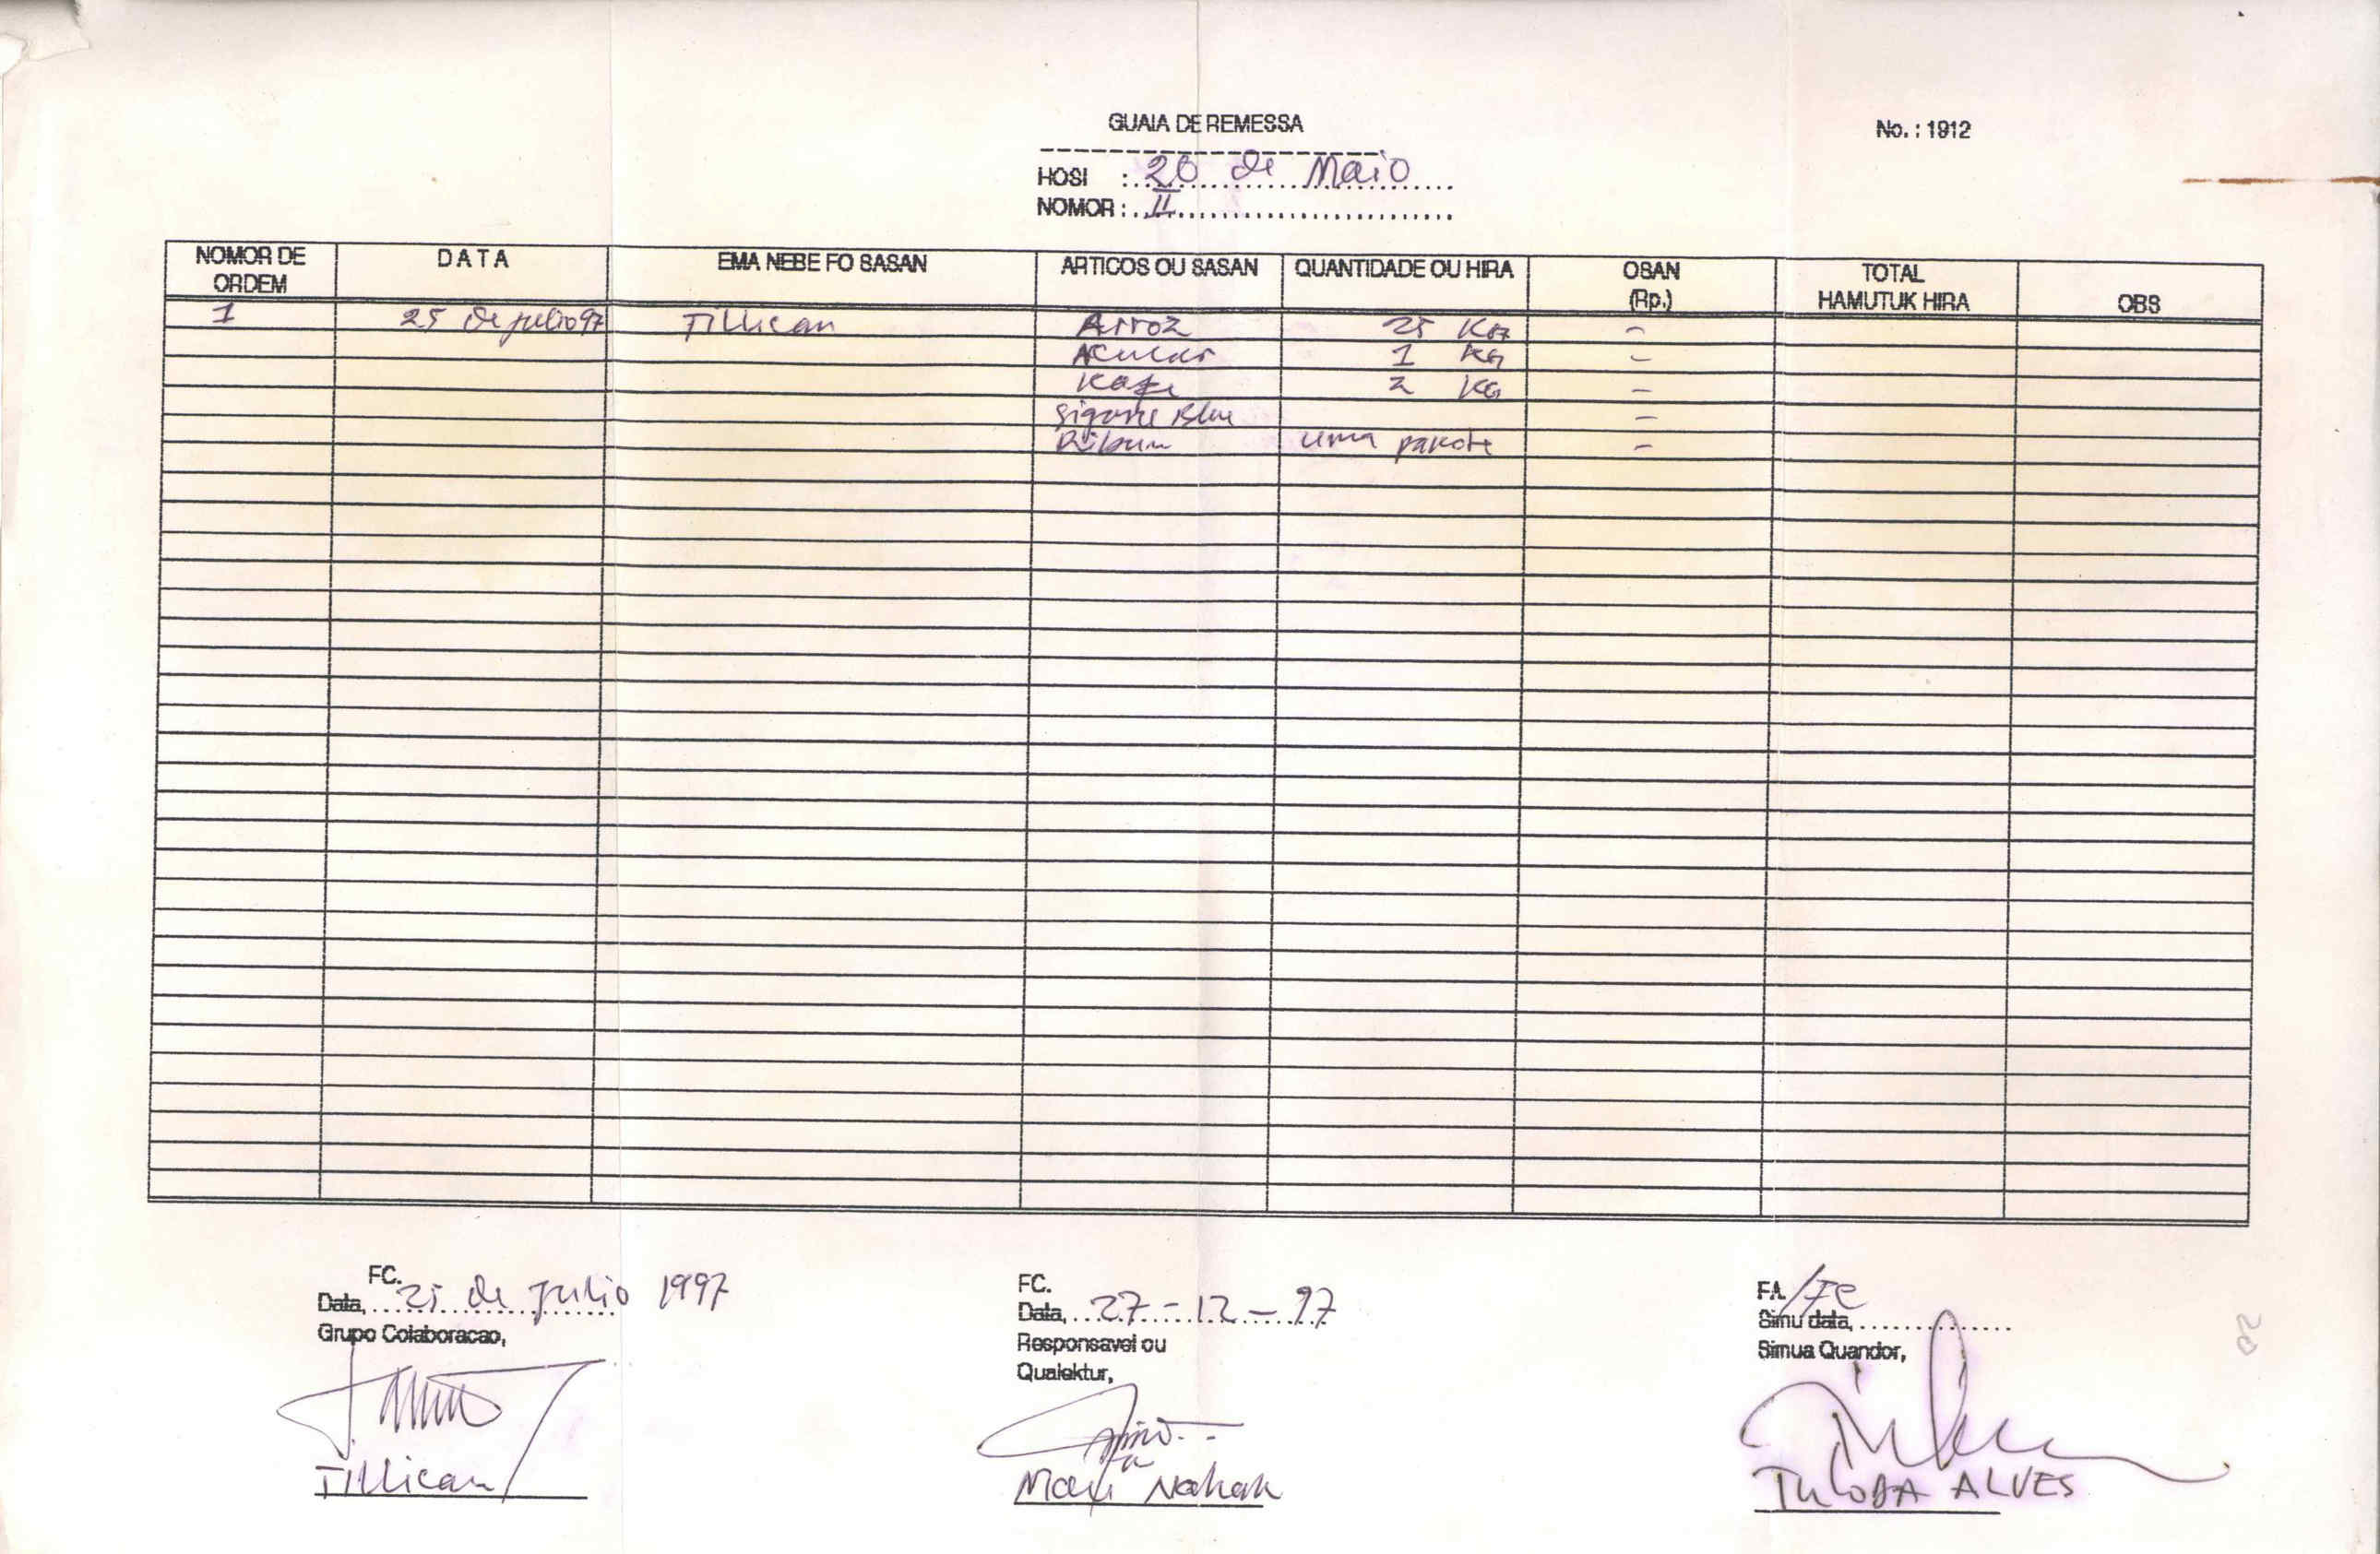 GUAIA DE REMESSA
No. : 1912
HOSI : 20 de Maio
NOMOR : II
NOMOR DE ORDEM DATA EMA NEBE FO SASAN ARTICOS OU SASAN QUANTIDADE OU HIRA OSAN (Rp.) TOTAL HAMUTUK HIRA OBS
1 25 de julio 97 Tillican Arroz 25 KG -
Acucar 1 KG -
Kafe 2 KG -
Sigarre Blue -
uma pakote -
FC.
Data, 25 de Julio 1997
Grupo Colaboracao,
Tillican
FC.
Data, 27-12-97
Responsavel ou
Qualektur,
Nahak
FA /FC
Simu data,
Simua Quandor,
ALVES
20